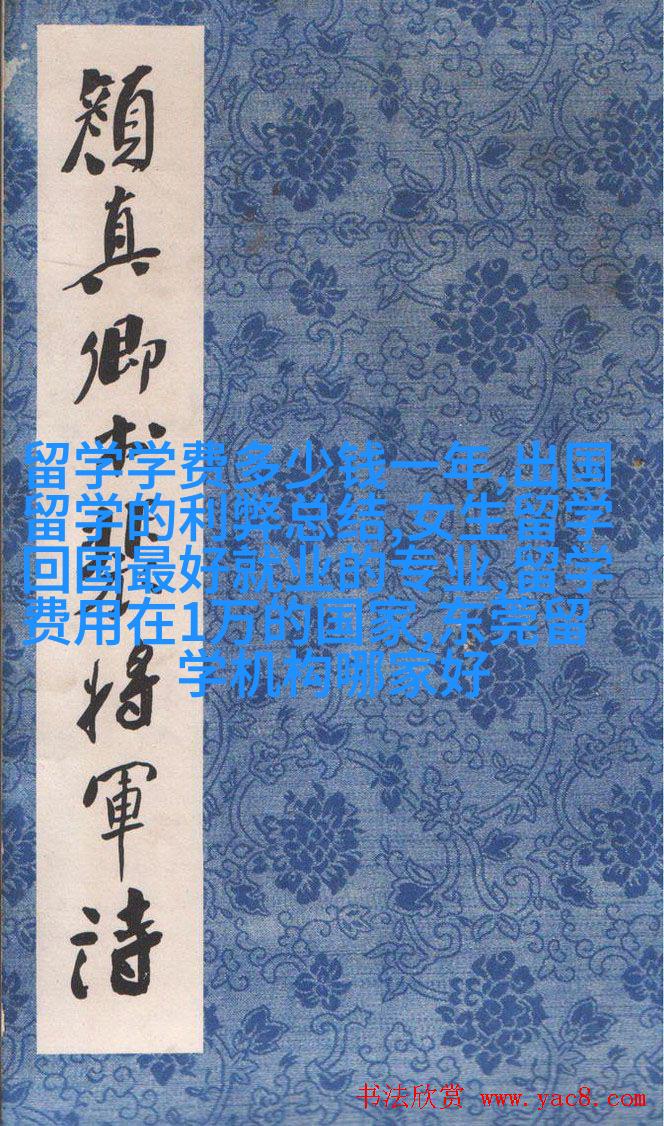 顔真卿将軍詩
留学学费多少钱一年,出国
留学的利弊总结,女生留学
回国最好就业的专业,留学
费用在1万的国家,东莞留
学机构哪家好
书法欣赏 www.yac8.com